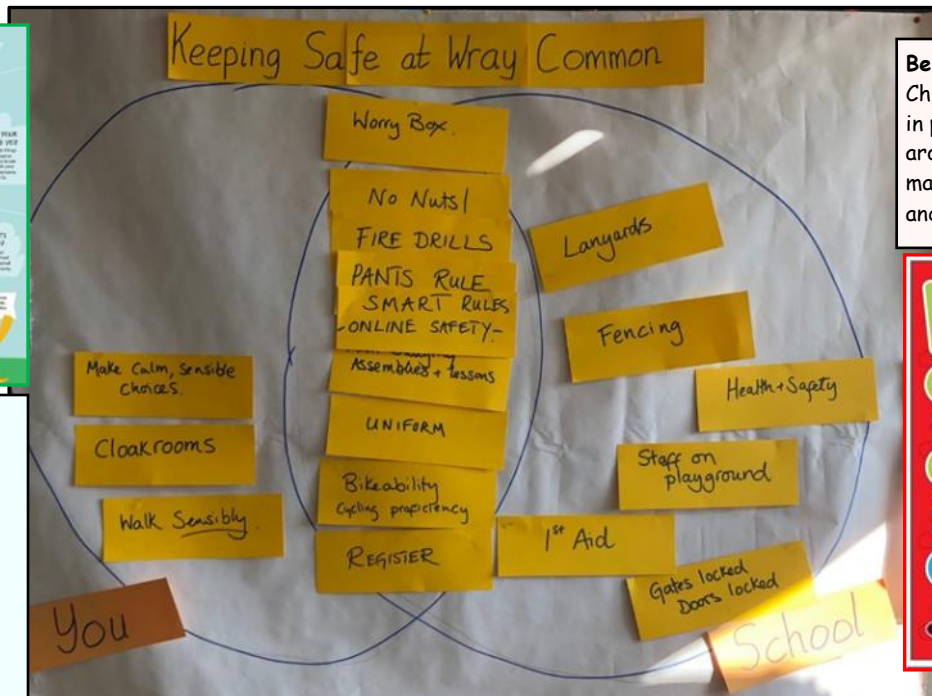 Keeping Safe at Wray Common
Worry Box.
No Nuts!
FIRE DRILLS
PANTS RULE
SMART RULES
-ONLINE SAFETY-
Assemblies + lessons
UNIFORM
Bikeability
Cycling proficiency
REGISTER
Make calm, sensible
choices.
Cloakrooms
Walk Sensibly.
You
Lanyards
Fencing
Health + Safety
Staff on
playground
1st Aid
Gates locked
Doors locked
School
Be
Ch
in p
aro
ma
and